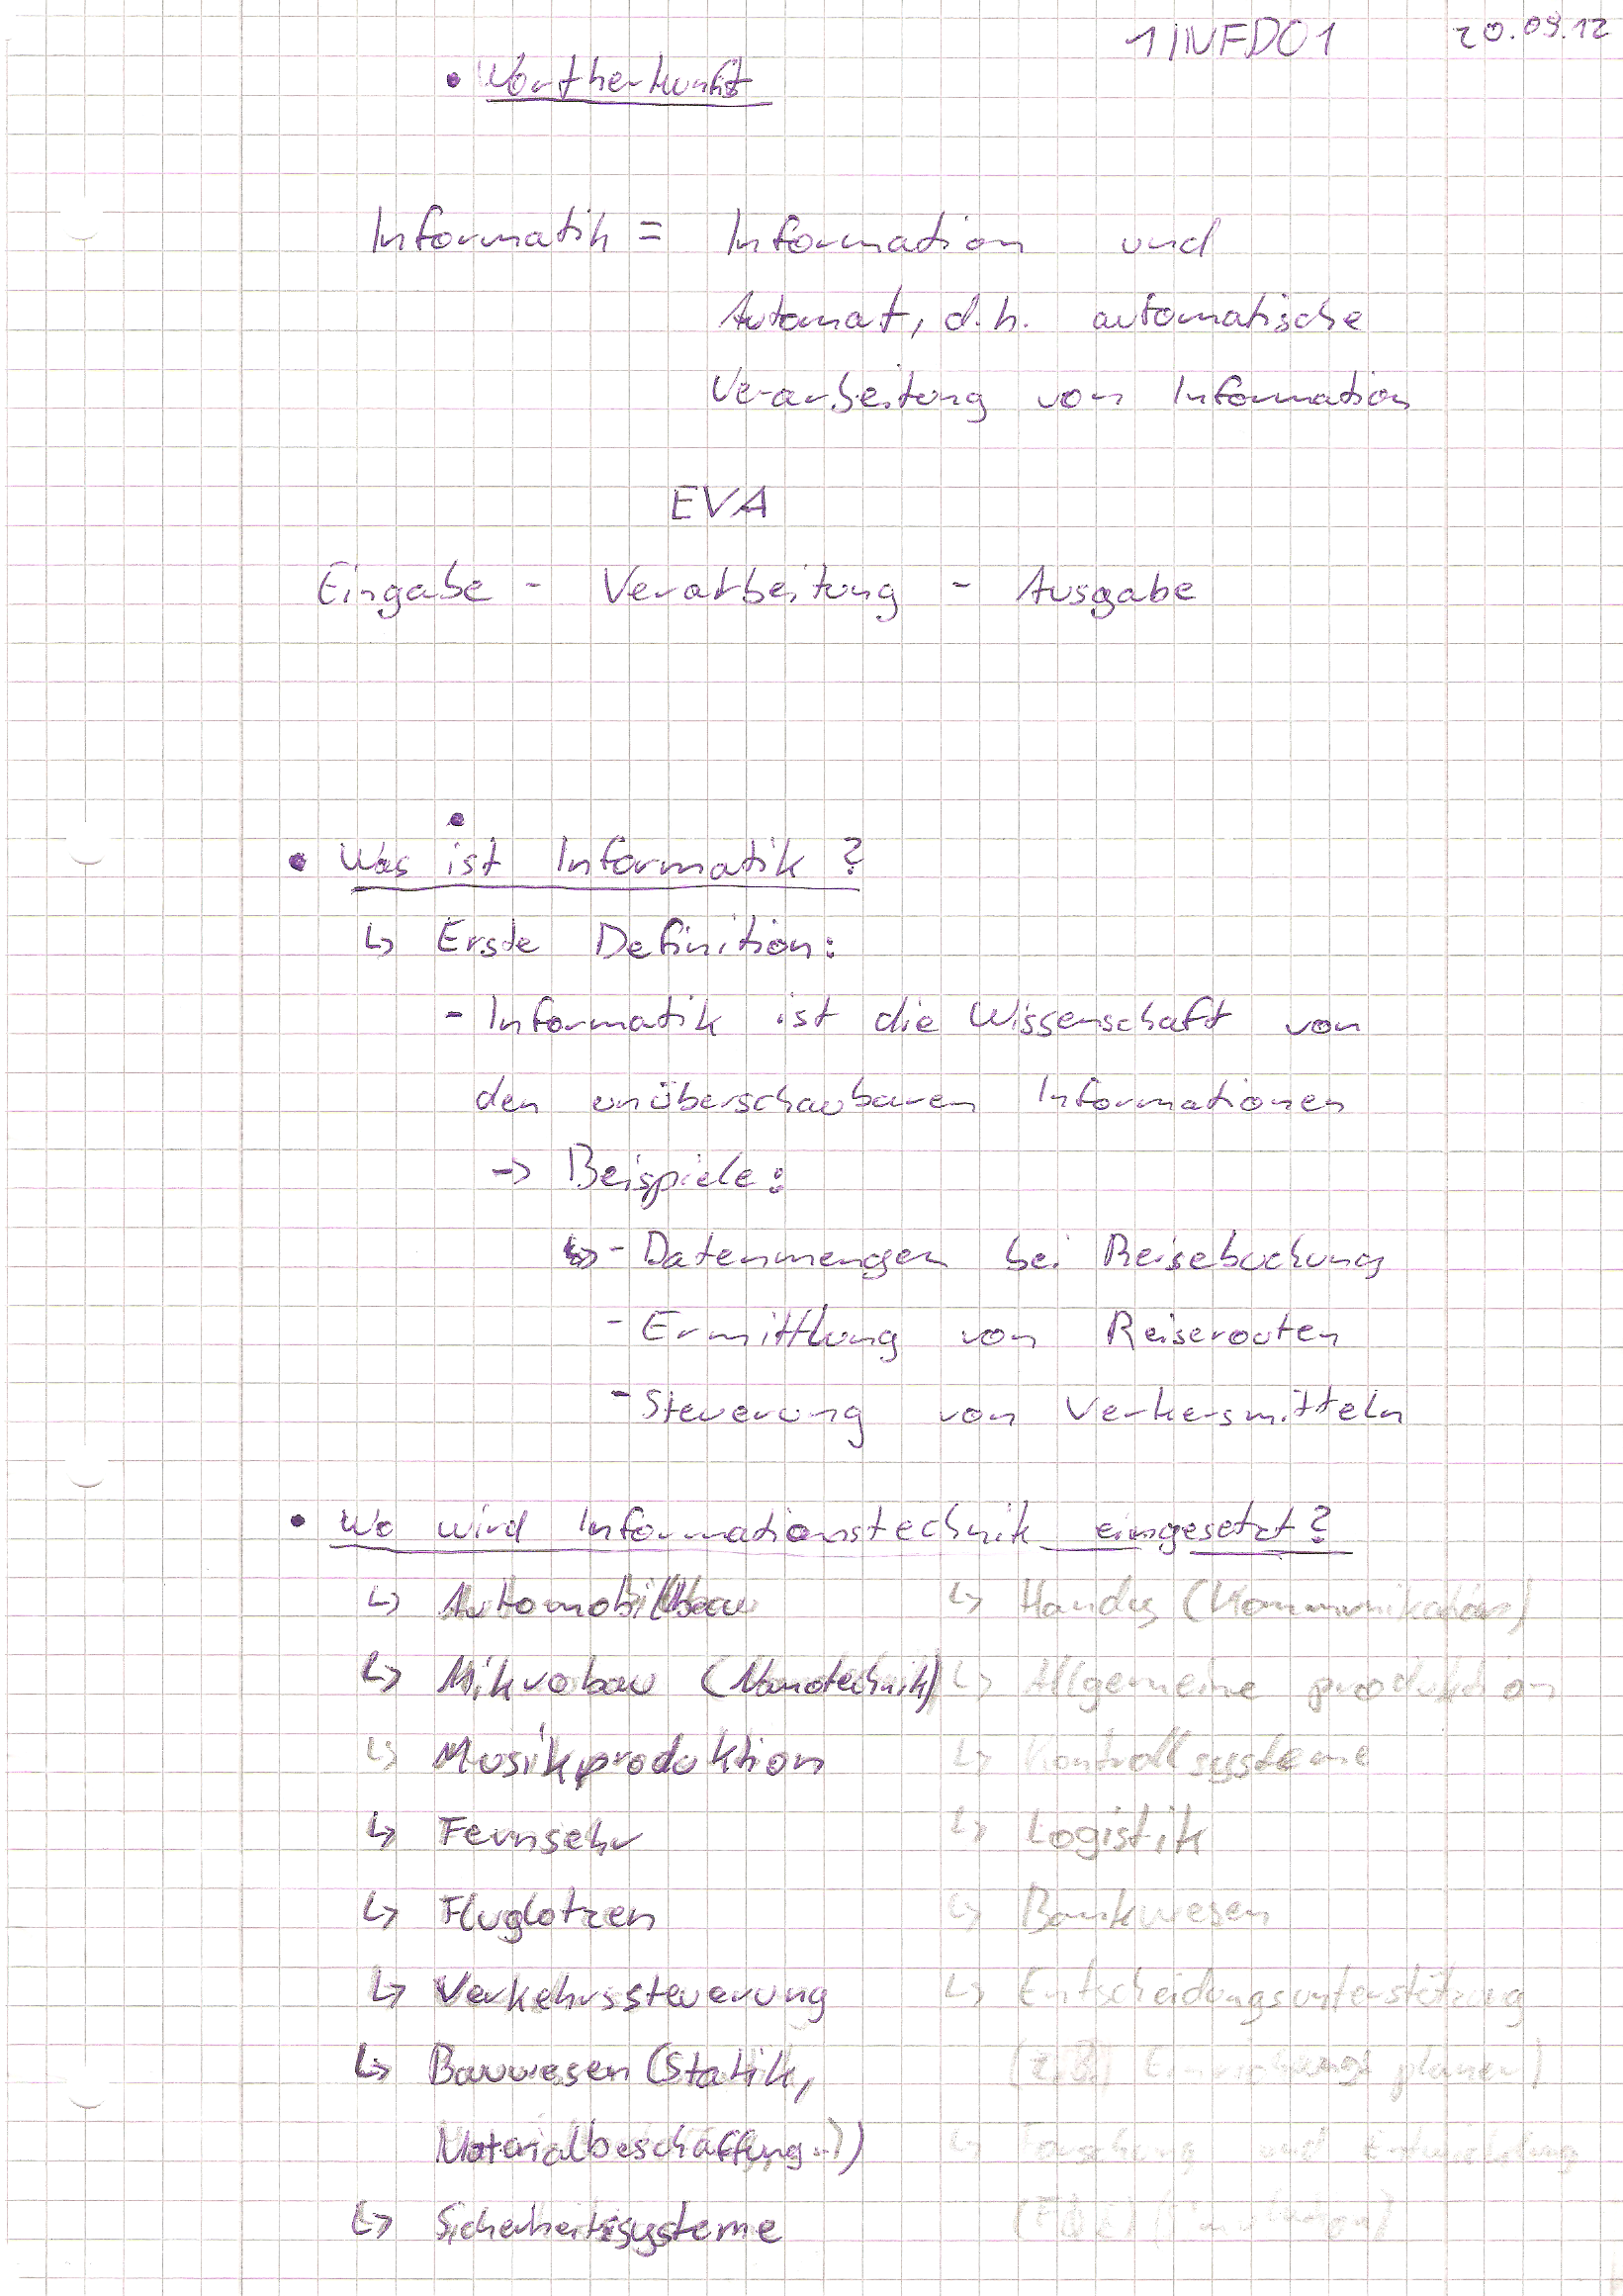 1INFD01 20.09.12
• Wortherkunft
Informatik = Information und
Automat, d.h. automatische
Verarbeitung von Information
EVA
Eingabe - Verarbeitung - Ausgabe
• Was ist Informatik?
↳ Erste Definition:
- Informatik ist die Wissenschaft von
den unüberschaubaren Informationen
-> Beispiele:
↳ - Datenmengen bei Reisebuchung
- Ermittlung von Reiserouten
- Steuerung von Verkersmitteln
• Wo wird Informationstechnik eingesetzt?
↳ Automobilbau
↳ Mikrobau (Nanotechnik)
↳ Musikproduktion
↳ Fernsehr
↳ Fluglotzen
↳ Verkehrssteuerung
↳ Bauwesen (Statik,
Materialbeschaffung..)
↳ Sicherheitssysteme
↳ Handy (Kommunikation)
↳ Allgemeine produktion
↳ Kontrollsysteme
↳ Logistik
↳ Bankwesen
↳ Entscheidungsunterstützung
(z.B. planen)
↳ Forschung und Entwicklung